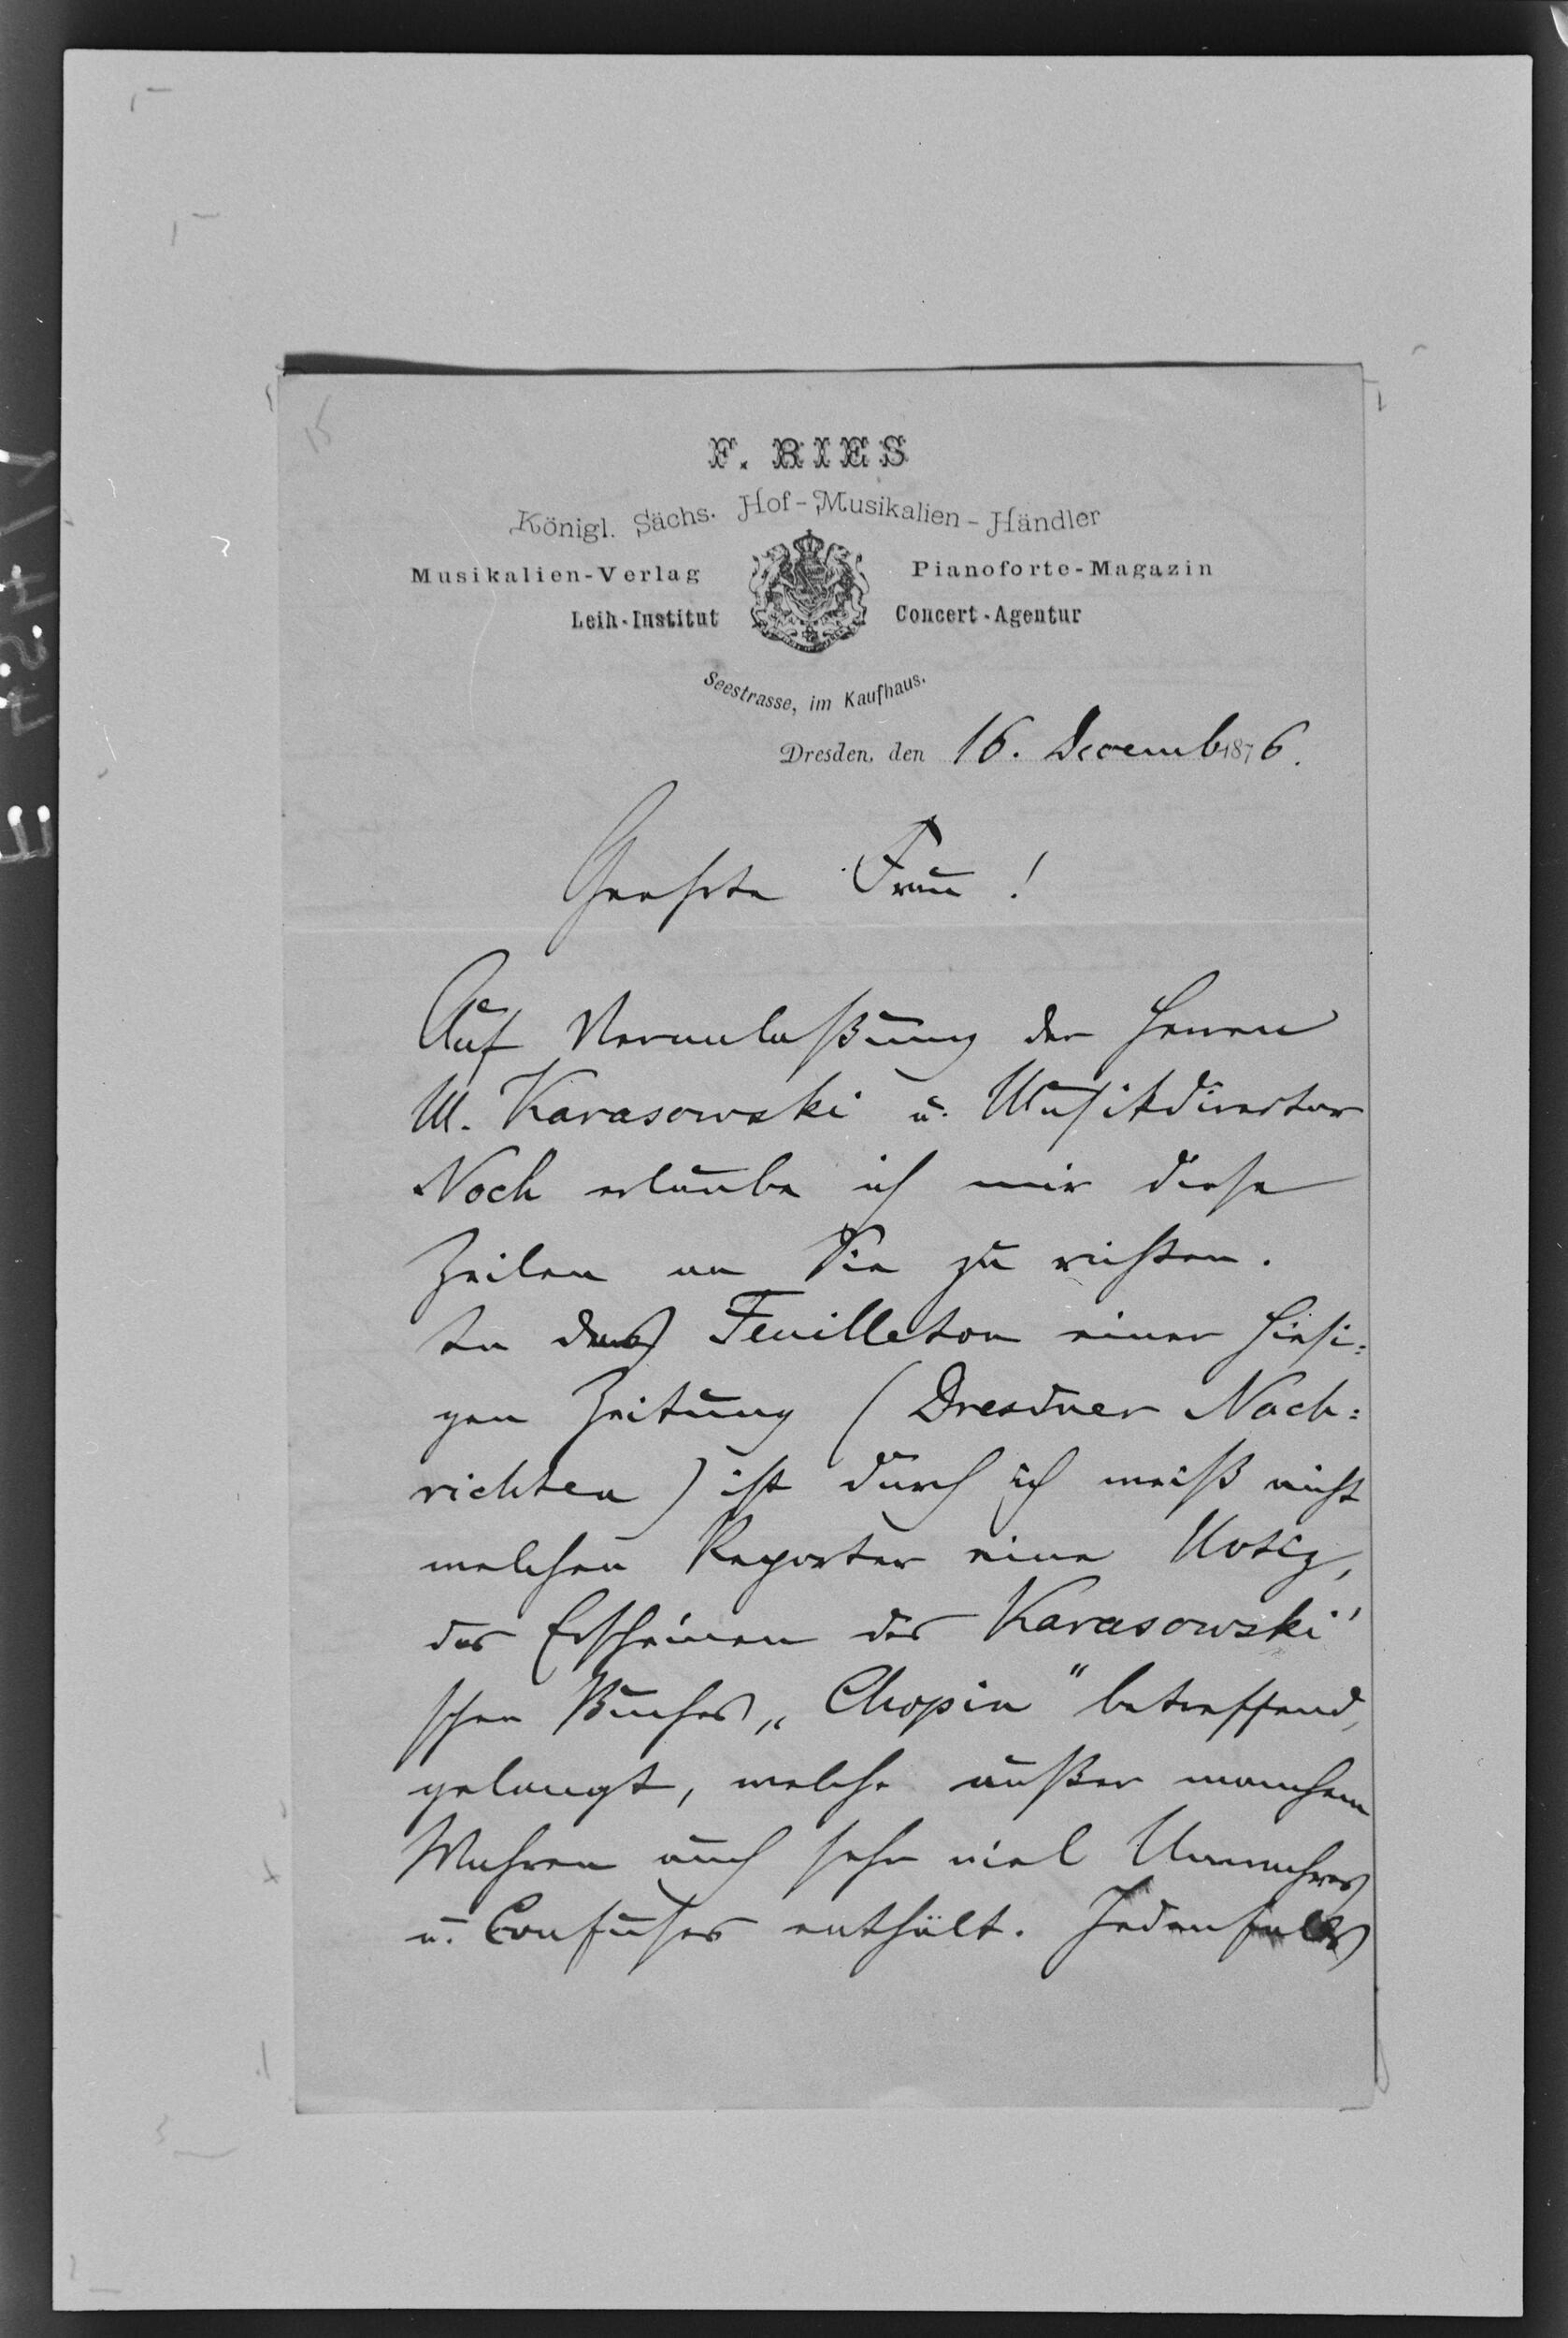 15
F. RIES
Königl. Sächs. Hof-Musikalien-Händler
Musikalien-Verlag Pianoforte-Magazin
Leih-Institut Concert-Agentur
Seestrasse, im Kaufhaus.
Dresden, den 16. Decemb 1876.
Geehrte Frau!
Auf Veranlaßung der Herren
M. Karasowski u. Musikdirector
Noch erlaube ich mir diese
Zeilen an Sie zu richten.
In das Feuilleton einer hiesi=
gen Zeitung (Dresdner Nach=
richten) ist durch ich weiß nicht
welchen Reporter eine Notiz,
das Erscheinen des Karasowski'
schen Buches „Chopin" betreffend,
gelangt, welche außer manchem
Wahren auch sehr viel Unwahres
u. Confuses enthält. Jedenfalls